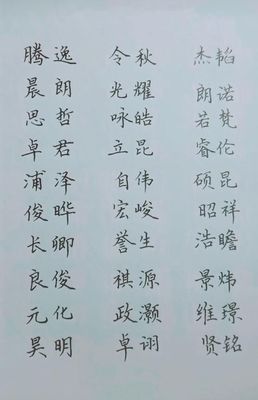 腾逸 令秋 杰韬
晨朗 光耀 朗诺
思哲 咏皓 若梵
卓君 立昆 睿伦
浦泽 自伟 硕昆
俊晔 宏峻 昭祥
长卿 誉生 浩瞻
良俊 祺源 景炜
元化 政灏 维璟
昊明 卓诩 贤铭